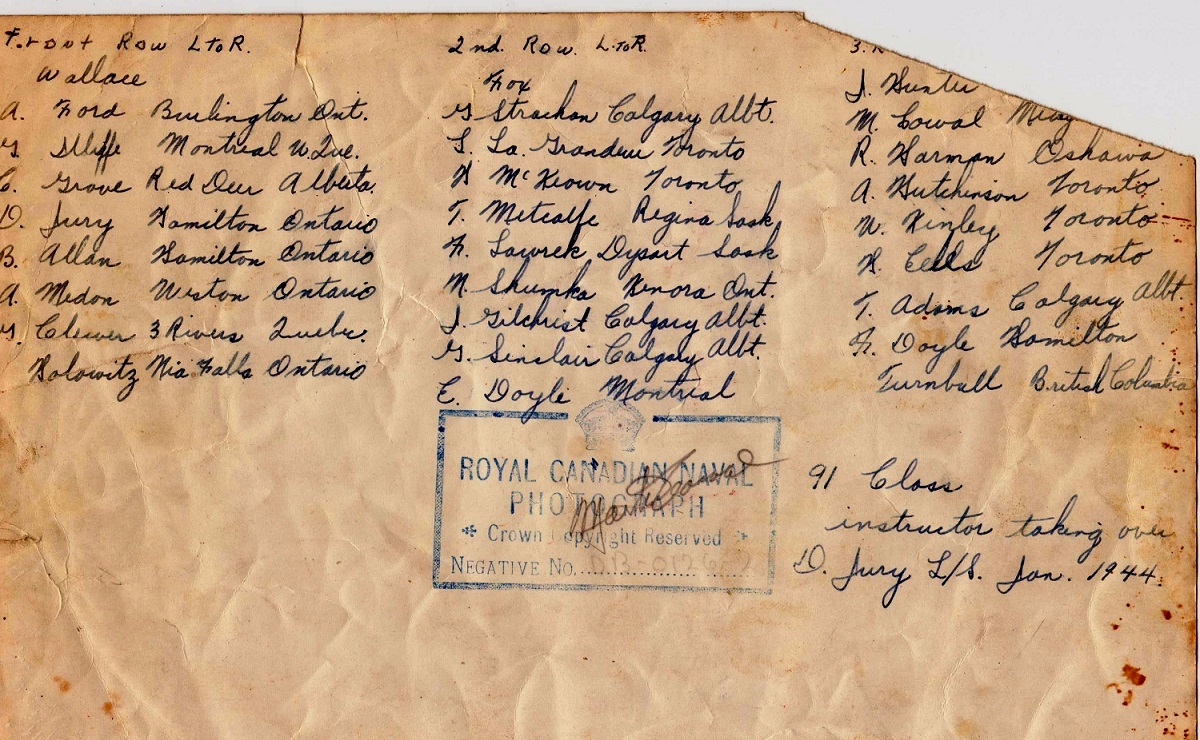 Front Row L to R.
Wallace
A. Ford Burlington Ont.
G. Iliffe Montreal W. Que.
C. Grove Red Deer Alberta.
D. Jury Hamilton Ontario
B. Allan Hamilton Ontario
A. Medon Weston Ontario
G. Clewer 3 Rivers Quebec.
Holowitz Nia Falls Ontario
2nd. Row. L. to R.
Fox
G. Strachan Calgary Albt.
L. La. Grandeur Toronto
H McKeown Toronto
T. Metcalfe Regina Sask
F. Lawrek Dysart Sask
M. Shumka Kenora Ont.
J. Gilchrist Calgary Albt.
G. Sinclair Calgary Albt.
E. Doyle Montreal
3.
J. Hunter
M. Cowal
R. Harman Oshawa
A. Hutchinson Toronto
W. Kinley Toronto
H. Eells Toronto
T. Adams Calgary Albt.
F. Doyle Hamilton
Turnbull British Columbia
ROYAL CANADIAN NAVAL
PHOTOGRAPH
Crown Copyright Reserved
NEGATIVE No.
91 Class
instructor taking over
D. Jury L/S. Jan. 1944.